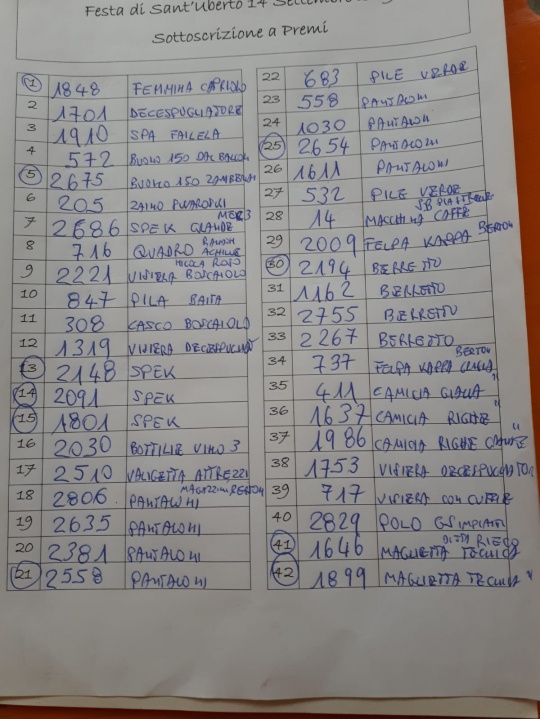 Festa di Sant'Uberto 14 Settembre
Sottoscrizione a Premi
1 1848 FEMMINA CAPRIOLO
2 1701 DECESPUGLIATORE
3 1910 SPA FALCELA
4 572 BUONO 150 DAL BALCON
5 2675 BUONO 150 ZAMBERLAN
6 205 ZAINO
7 2686 SPEK GRANDE
8 716 QUADRO ACHILLE
9 2221 VISIERA BOSCAIOLO
10 847 PILA BAITA
11 308 CASCO BOSCAIOLO
12 1319 VISIERA DECESPUGLIAT
13 2148 SPEK
14 2091 SPEK
15 1801 SPEK
16 2030 BOTTILIE VINO 3
17 2510 VALIGETTA ATTREZZI
18 2806 PANTALONI MAGAZZINI BERTON
19 2635 PANTALONI
20 2381 PANTALONI
21 2558 PANTALONI
22 683 PILE VERDE
23 558 PANTALONI
24 1030 PANTALON
25 2654 PANTALONI
26 1611 PANTALONI
27 532 PILE VERDE
28 14 MACCHINA CAFFE
29 2009 FELPA KAPPA BERTON
30 2194 BERRETTO
31 1162 BERRETTO
32 2755 BERRETTO
33 2267 BERRETTO
34 737 FELPA KAPPA GIALLA BERTON
35 411 CAMICIA GIALLA "
36 1637 CAMICIA RIGHE "
37 1986 CAMICIA RIGHE GRANDE "
38 1753 VISIERA DECESPUGLIATOR
39 717 VISIERA CON CUFFIE
40 2829 POLO GS IMPIANTI
41 1646 MAGLIETTA TECNICA DITTA RIEGO
42 1899 MAGLIETTA TECNICA "